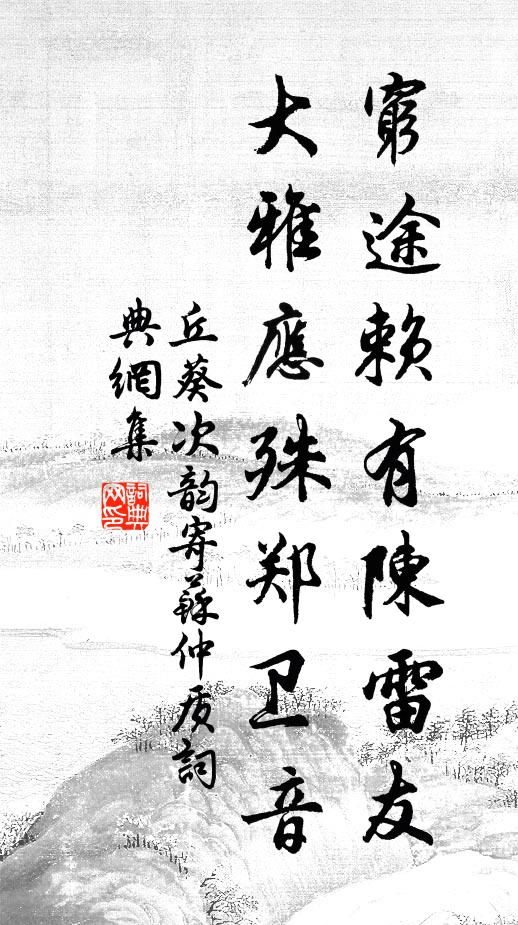 窮途賴有陳雷友
大雅應殊郑卫音
丘葵次韵寄蘇仲质詞
典網集
詞典
网印